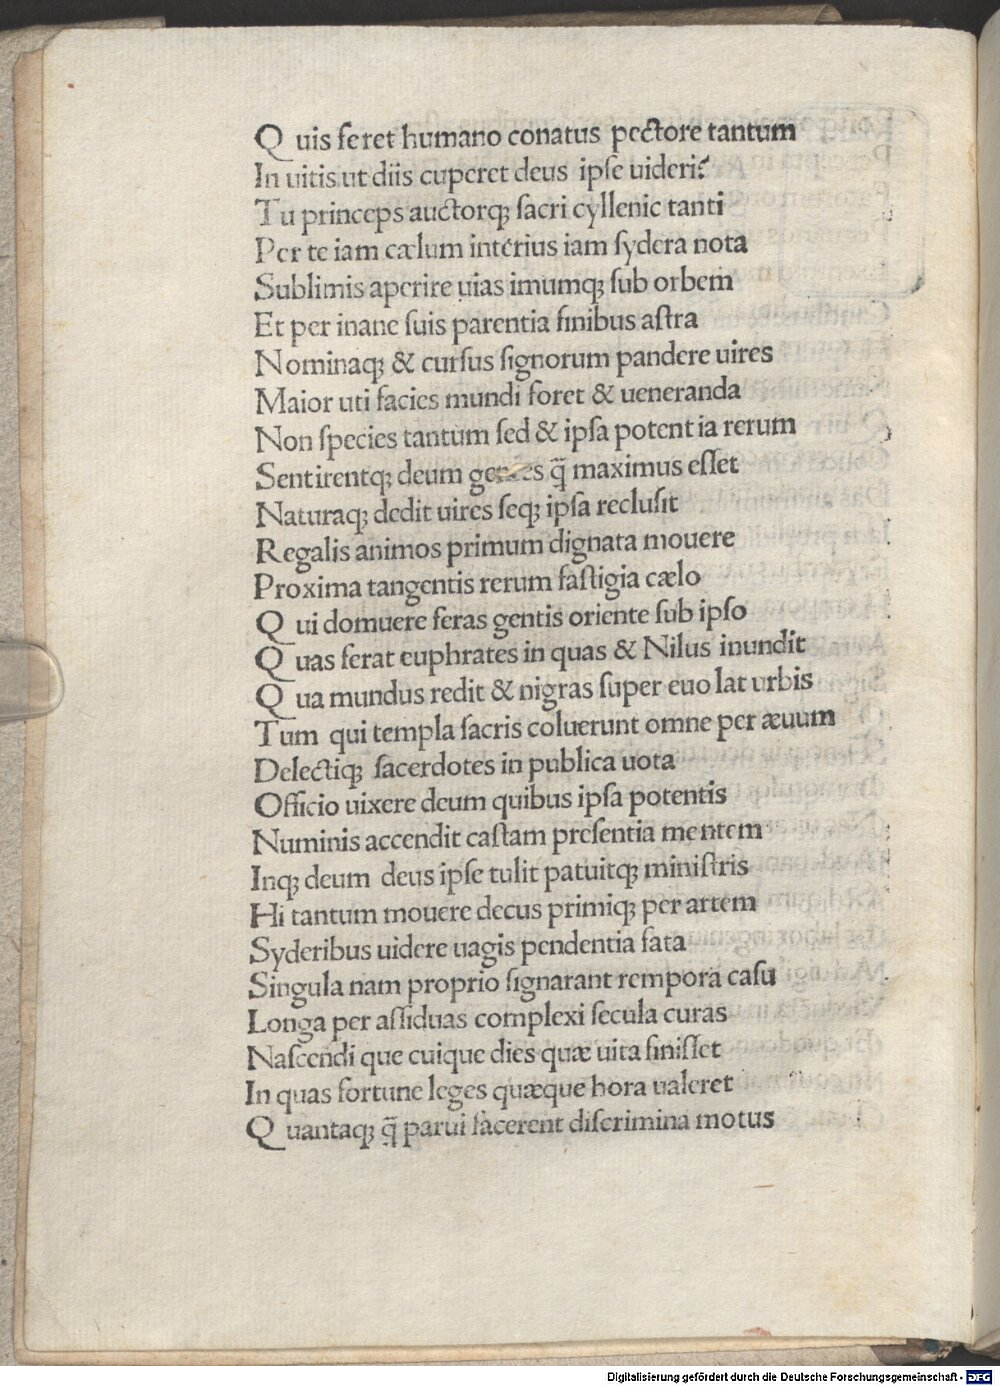 Q uis feret humano conatus pectore tantum
In uitis ut diis cuperet deus ipſe uideri?
Tu princeps auctorqꝫ ſacri cyllenie tanti
Per te iam cælum interius iam ſydera nota
Sublimis aperire uias imumqꝫ ſub orbem
Et per inane ſuis parentia finibus aſtra
Nominaqꝫ & curſus ſignorum pandere uires
Maior uti facies mundi foret & ueneranda
Non ſpecies tantum ſed & ipſa potent ia rerum
Sentirentqꝫ deum q̄ maximus eſſet
Naturaqꝫ dedit uires ſeqꝫ ipſa recluſit
Regalis animos primum dignata mouere
Proxima tangentis rerum faſtigia cælo
Q ui domuere feras gentis oriente ſub ipſo
Q uas ferat euphrates in quas & Nilus inundit
Q ua mundus redit & nigras ſuper euo lat urbis
Tum qui templa ſacris coluerunt omne per æuum
Delectiqꝫ ſacerdotes in publica uota
Officio uixere deum quibus ipſa potentis
Numinis accendit caſtam preſentia mentem
Inqꝫ deum deus ipſe tulit patuitqꝫ miniſtris
Hi tantum mouere decus primiqꝫ per artem
Syderibus uidere uagis pendentia fata
Singula nam proprio ſignarant tempora caſu
Longa per aſſiduas complexi ſecula curas
Naſcendi que cuique dies quæ uita finiſſet
In quas fortune leges quæque hora ualeret
Q uantaqꝫ q̄ parui facerent diſcrimina motus
Digitalisierung gefördert durch die Deutsche Forschungsgemeinschaft - DFG